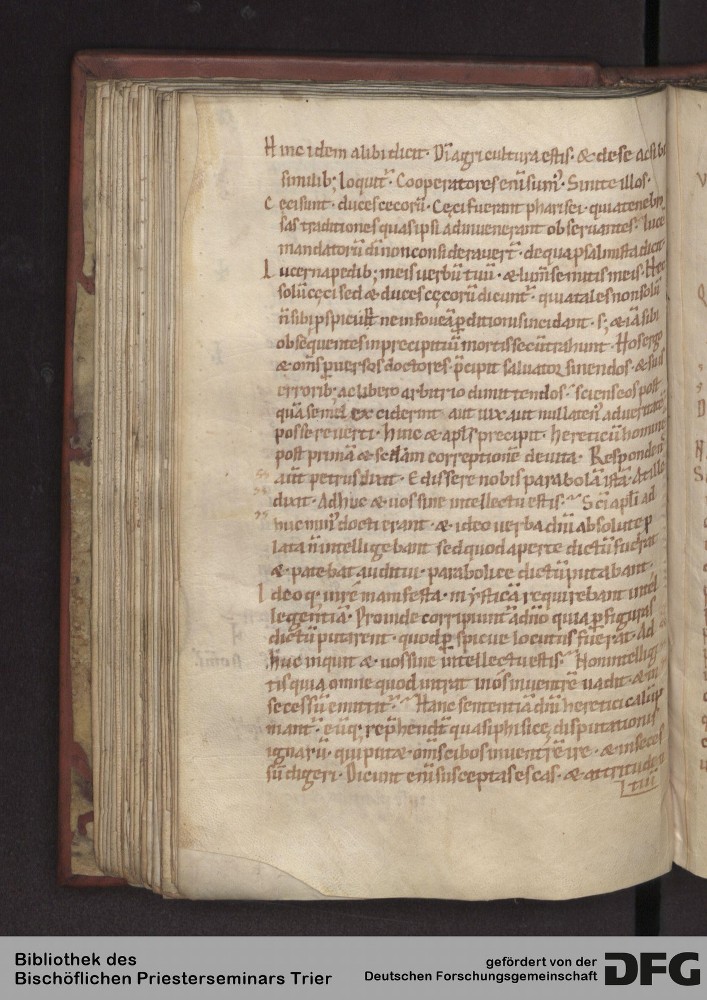 Hinc idem alibi dicit· Di agricultura estis· & de se ac sibi
similib; loquit᷑· Cooperatores eni sum᷒· Sinite illos·
Cęci sunt· duces cecorū· Cęci fuerant pharisei· quia tenebro
sas traditiones quas ipsi adinvenerant observantes· luce
mandatorū di non consideraver̄t· de qua psalmista dicit·
Lucerna pedib; meis verbū tuū· & lum semitis meis· Hec
solū cęci sed & duces cęcorū dicunt᷑· quia tales non solū
n̄ sibi pspiciūt ne in foveā pditionis incidant· s; & iā sibi
obsequentes in precipitiū mortis secū trahunt· Hos ergo
& om̄s pversos doctores· pcipit salvator sinendos· & suis
errorib; ac libero arbitrio dimittendos· sciens eos post
quā semel exciderint· aut vix aut nullaten᷒ ad veritatē
posse reverti· Huic & apl̄s precipit· hereticū homine
post primā & secdam correptionē devita· Respondens
aūt petrus dixit· Edissere nobis parabolā istā· At ille
dixit· Adhuc & vos sine intellectu estis· Sci apli ad
huc min᷒ docti erant· & ideo verba dn̄i absolute p
lata n̄ intelligebant sed quod aperte dictū fuerat
& patebat auditui· parabolice dictū putabant·
Ideoq; in re manifesta· mysticā requirebant intel
legentiā· Proinde corripiunt᷑ a dn̄o quia p figuras
dictū putarent· quod pspicue locutus fuerat· Ad
huc inquit & vos sine intellectu estis· Non intelligi
tis quia omne quod intrat in os in ventrē vadit· & in
secessū emittit᷑· Hanc sententiā dn̄i heretici calūp
niant᷑· eūq; rep̄hendt᷑ quasi phisicę disputationis
ignarū· qui putat om̄s cibos in ventrē ire· & in seces
sū digeri· Dicunt eni susceptas escas· & attritu den
tiū
Bibliothek des
Bischöflichen Priesterseminars Trier
gefördert von der
Deutschen Forschungsgemeinschaft
DFG